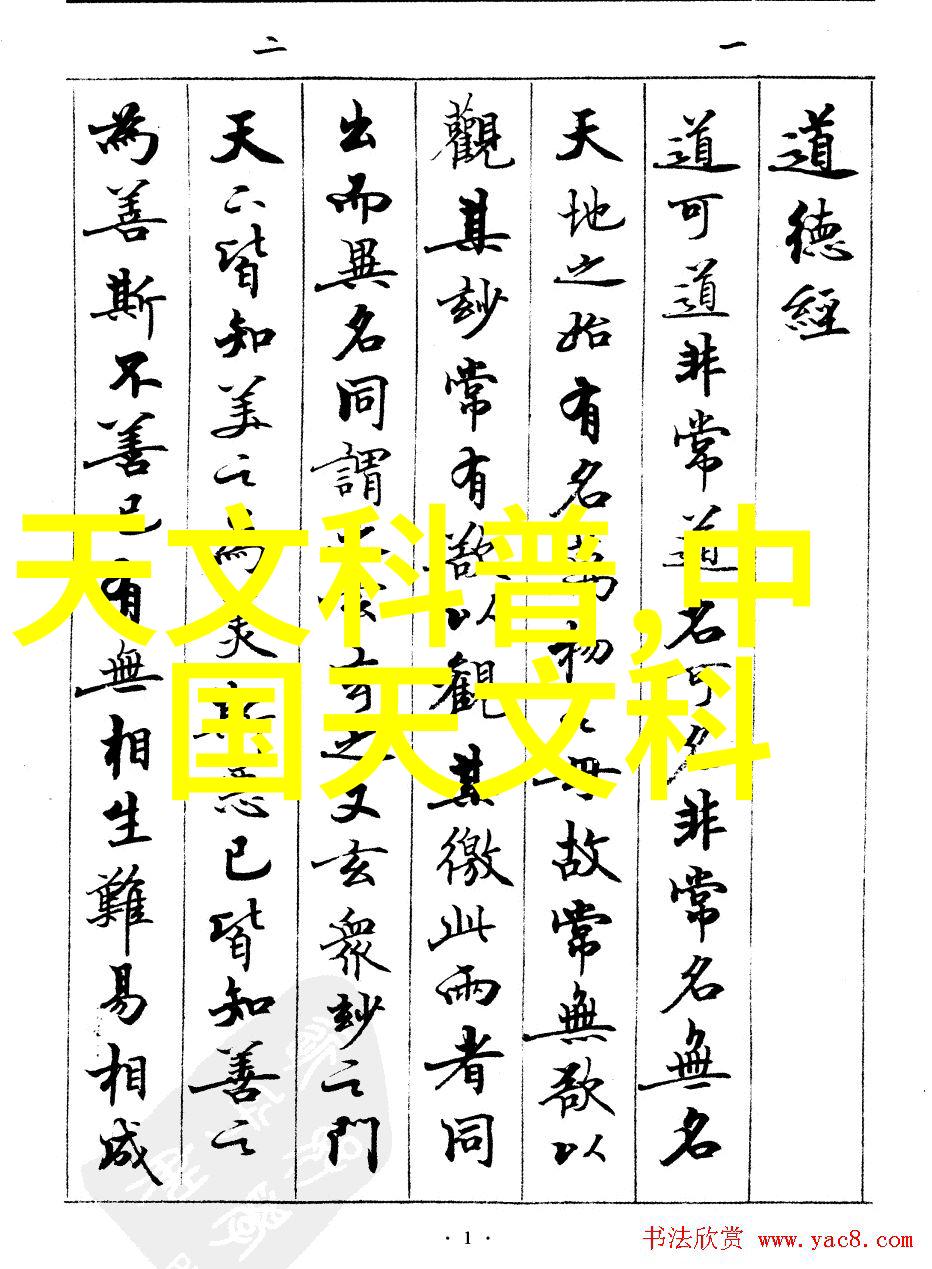 一
道德經
道可道非常道名可名非常名無名
天地之始有名萬物之母故常無欲以
觀其玅常有欲以觀其徼此兩者同
出而異名同謂之玄玄之又玄眾玅之門
二
天下皆知美之為美斯惡已皆知善之
為善斯不善已有無相生難易相成
天文科普,中
国天文科
· 1 ·
书法欣赏 www.yac8.com